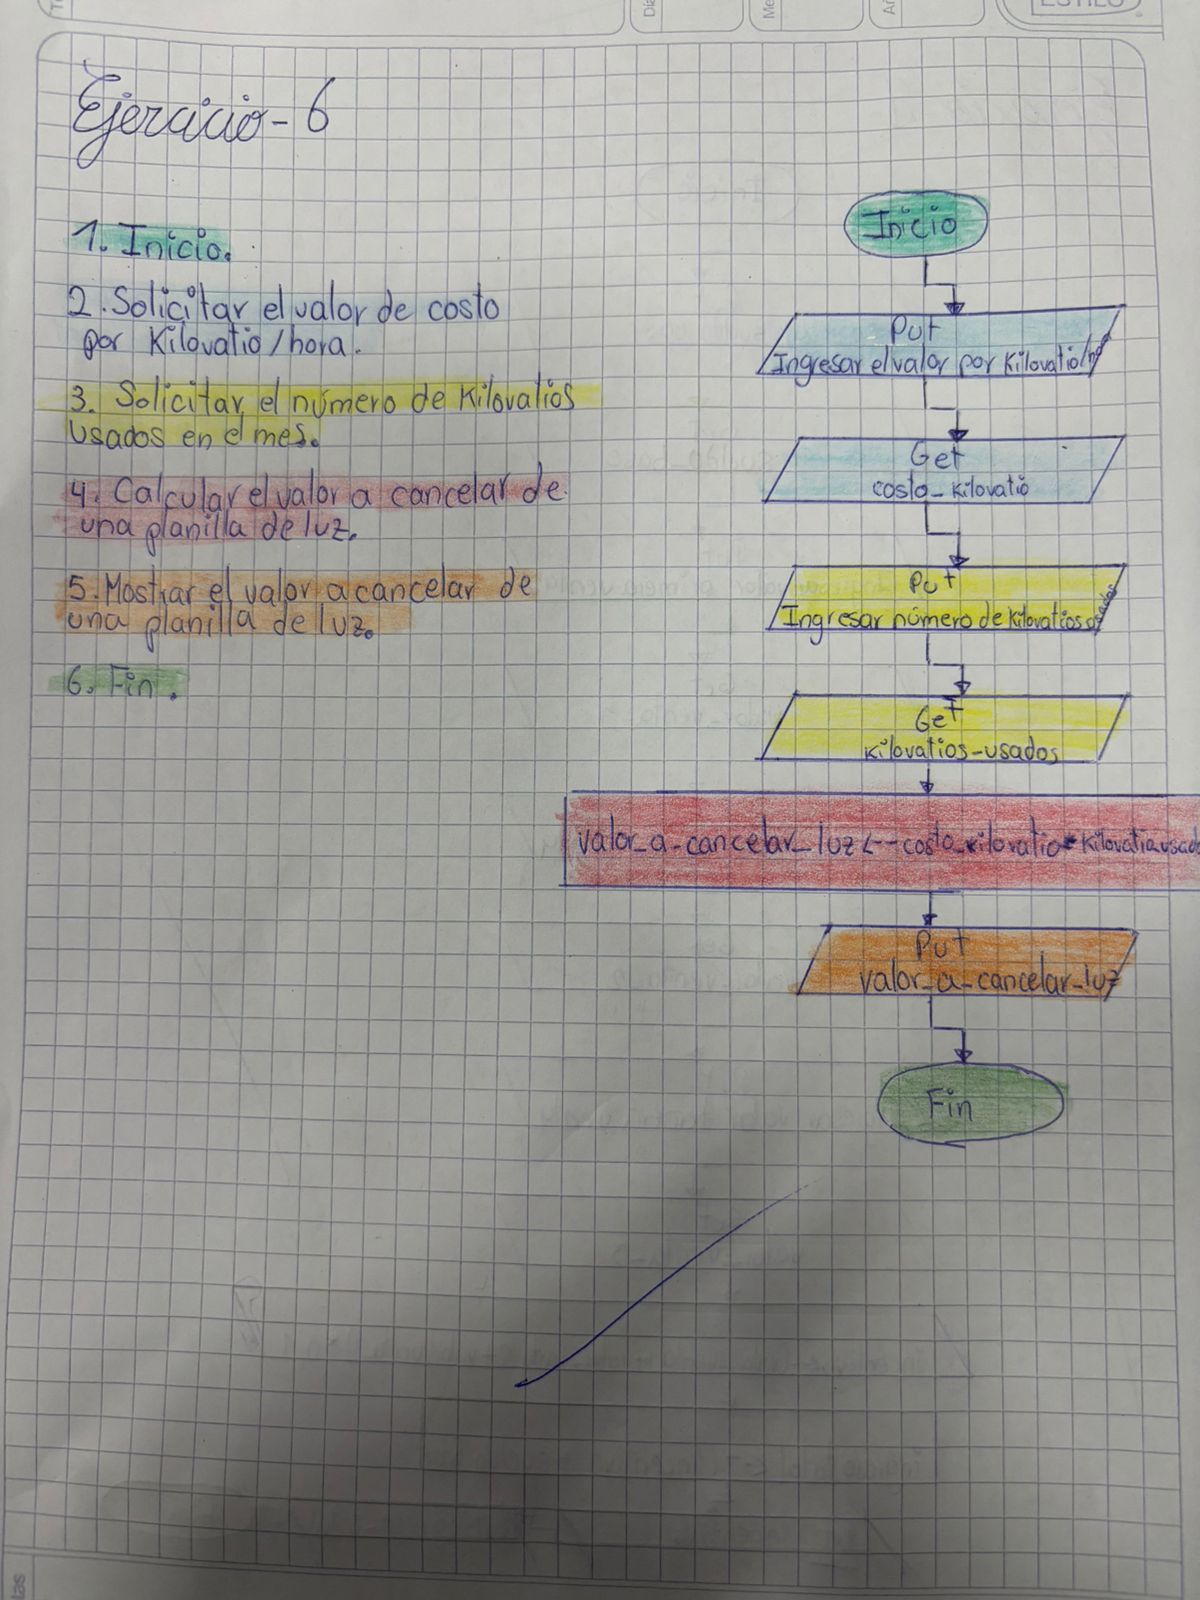 ESTILO
Ejercicio-6
1. Inicio.
2. Solicitar el valor de costo
por Kilovatio/hora.
3. Solicitar el número de Kilovatios
usados en el mes.
4. Calcular el valor a cancelar de
una planilla de luz.
5. Mostrar el valor a cancelar de
una planilla de luz.
6. Fin.
Inicio
Put
Ingresar el valor por Kilovatio/
Get
costo_kilovatio
Put
Ingresar número de Kilovatios usados
Get
kilovatios-usados
valor_a-cancelar_luz <-- costo_kilovatio * Kilovatio
Put
valor_a-cancelar_luz
Fin